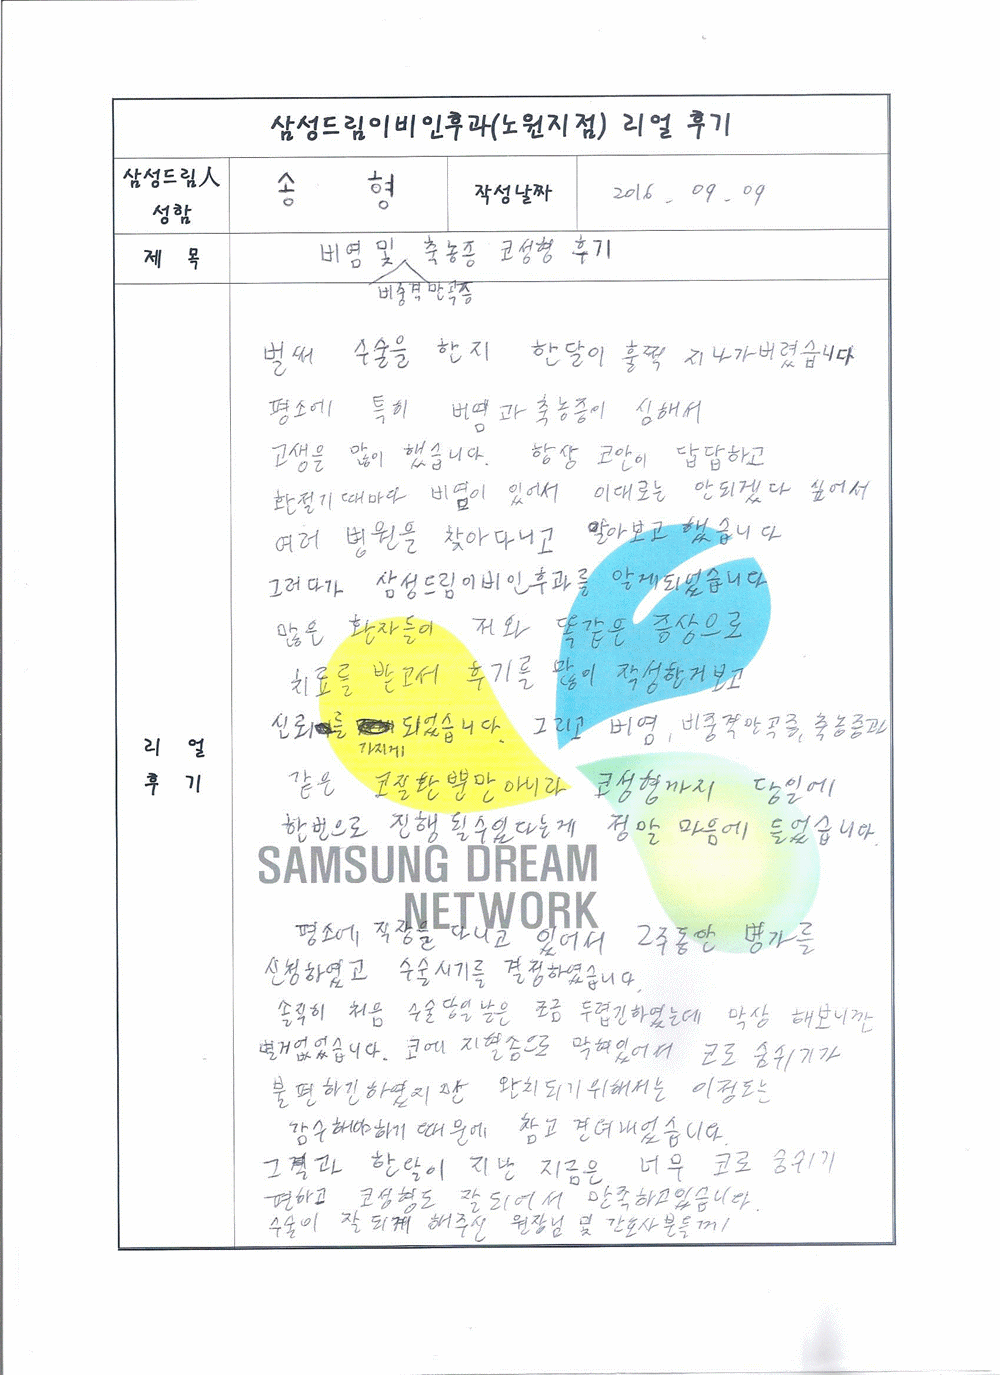 삼성드림이비인후과(노원지점) 리얼 후기
삼성드림人 성함
송 형
작성날짜
2016. 09. 09
제 목
비염 및 축농증 코성형 후기
비중격만곡증
리 얼 후 기
벌써 수술을 한지 한달이 훌쩍 지나가버렸습니다
평소에 특히 비염과 축농증이 심해서
고생을 많이 했습니다. 항상 코안이 답답하고
환절기때마다 비염이 있어서 이대로는 안되겠다 싶어서
여러 병원을 찾아다니고 알아보고 했습니다
그러다가 삼성드림이비인후과를 알게되었습니다
많은 환자들이 저와 똑같은 증상으로
치료를 받고서 후기를 많이 작성한거보고
신뢰를 가지게 되었습니다. 그리고 비염, 비중격만곡증, 축농증과
같은 코질환뿐만아니라 코성형까지 당일에
한번으로 진행될수있다는게 정말 마음에 들었습니다.
SAMSUNG DREAM
NETWORK
평소에 직장을 다니고 있어서 2주동안 병가를
신청하였고 수술시기를 결정하였습니다.
솔직히 처음 수술당일날은 조금 두렵긴하였는데 막상 해보니깐
별거없었습니다. 코에 지혈솜으로 막혀있어서 코로 숨쉬기가
불편하긴하였지만 완치되기위해서는 이정도는
감수해야하기 때문에 참고 견뎌내었습니다.
그결과 한달이 지난 지금은 너무 코로 숨쉬기
편하고 코성형도 잘되어서 만족하고있습니다.
수술이 잘되게 해주신 원장님 및 간호사분들께